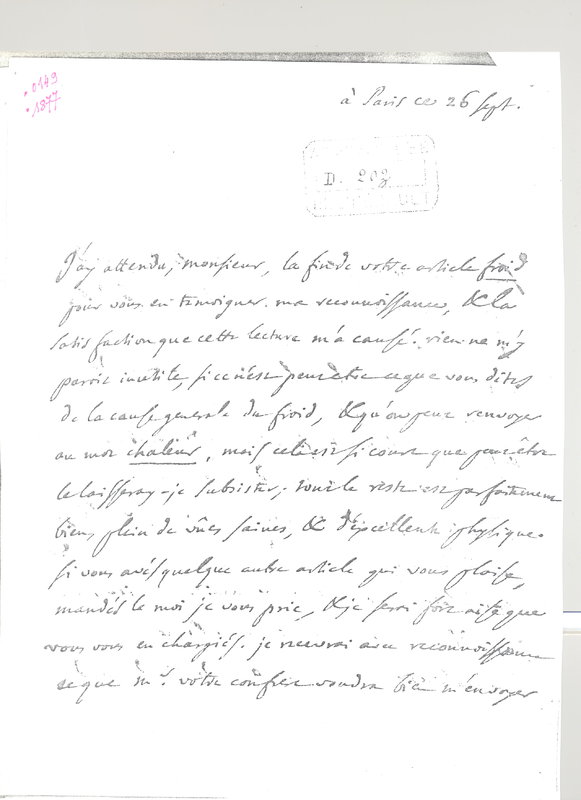 .0149
.1877
à Paris ce 26 sept.
D. 202
J'ay attendu, monsieur, la fin de votre article froid
pour vous en temoigner ma reconnoissance, & la
satisfaction que cette lecture m'a causé. rien ne m'y
paroit inutile, si ce n'est peut etre ce que vous dites
de la cause generale du froid, & qu'on peut renvoyer
au mot chaleur, mais cela est si court que peut etre
le laisseray-je subsister; tout le reste est parfaitement
bien, plein de vûes saines, & d'excellente physique.
si vous avés quelque autre article qui vous plaise,
mandés le moi je vous prie, & je serai fort aise que
vous vous en chargiés. je recevrai avec reconnoissance
ce que mr. votre confrere voudra bien m'envoyer